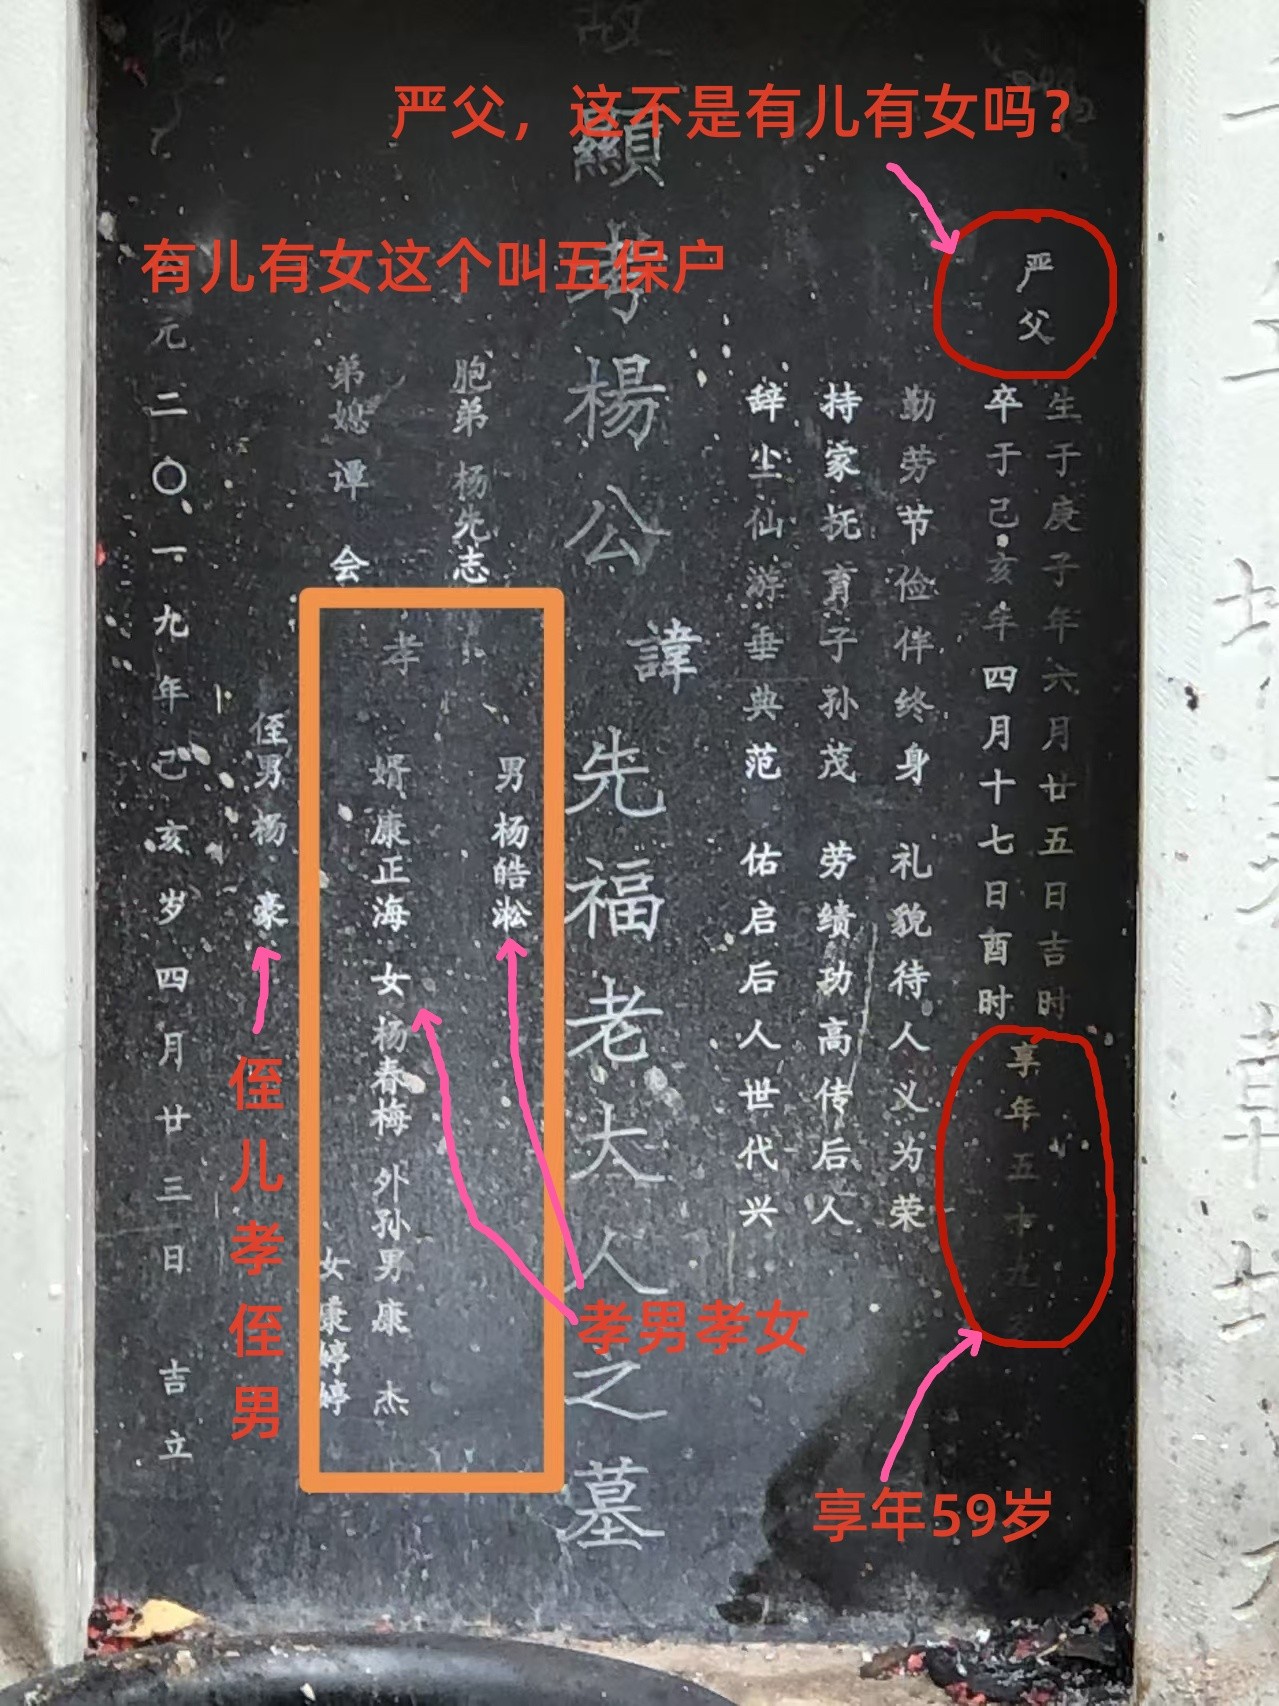 严父，这不是有儿有女吗？
有儿有女这个叫五保户
严父
生于庚子年六月廿五日吉时
卒于己亥年四月十七日酉时
享年五十九
勤劳节俭伴终身 礼貌待人义为荣
持家抚育子孙茂 劳绩功高传后人
辞尘仙游垂典范 佑启后人世代兴
故
顯考楊公諱先福老大人之墓
胞弟 杨先志
弟媳 谭 会
孝
男 杨皓淞
婿 康正海 女 杨春梅 外孙男 康 杰
女 康婷婷
侄男 杨 豪
元二〇一九年己亥岁四月廿三日 吉立
侄儿孝侄男
孝男孝女
享年59岁